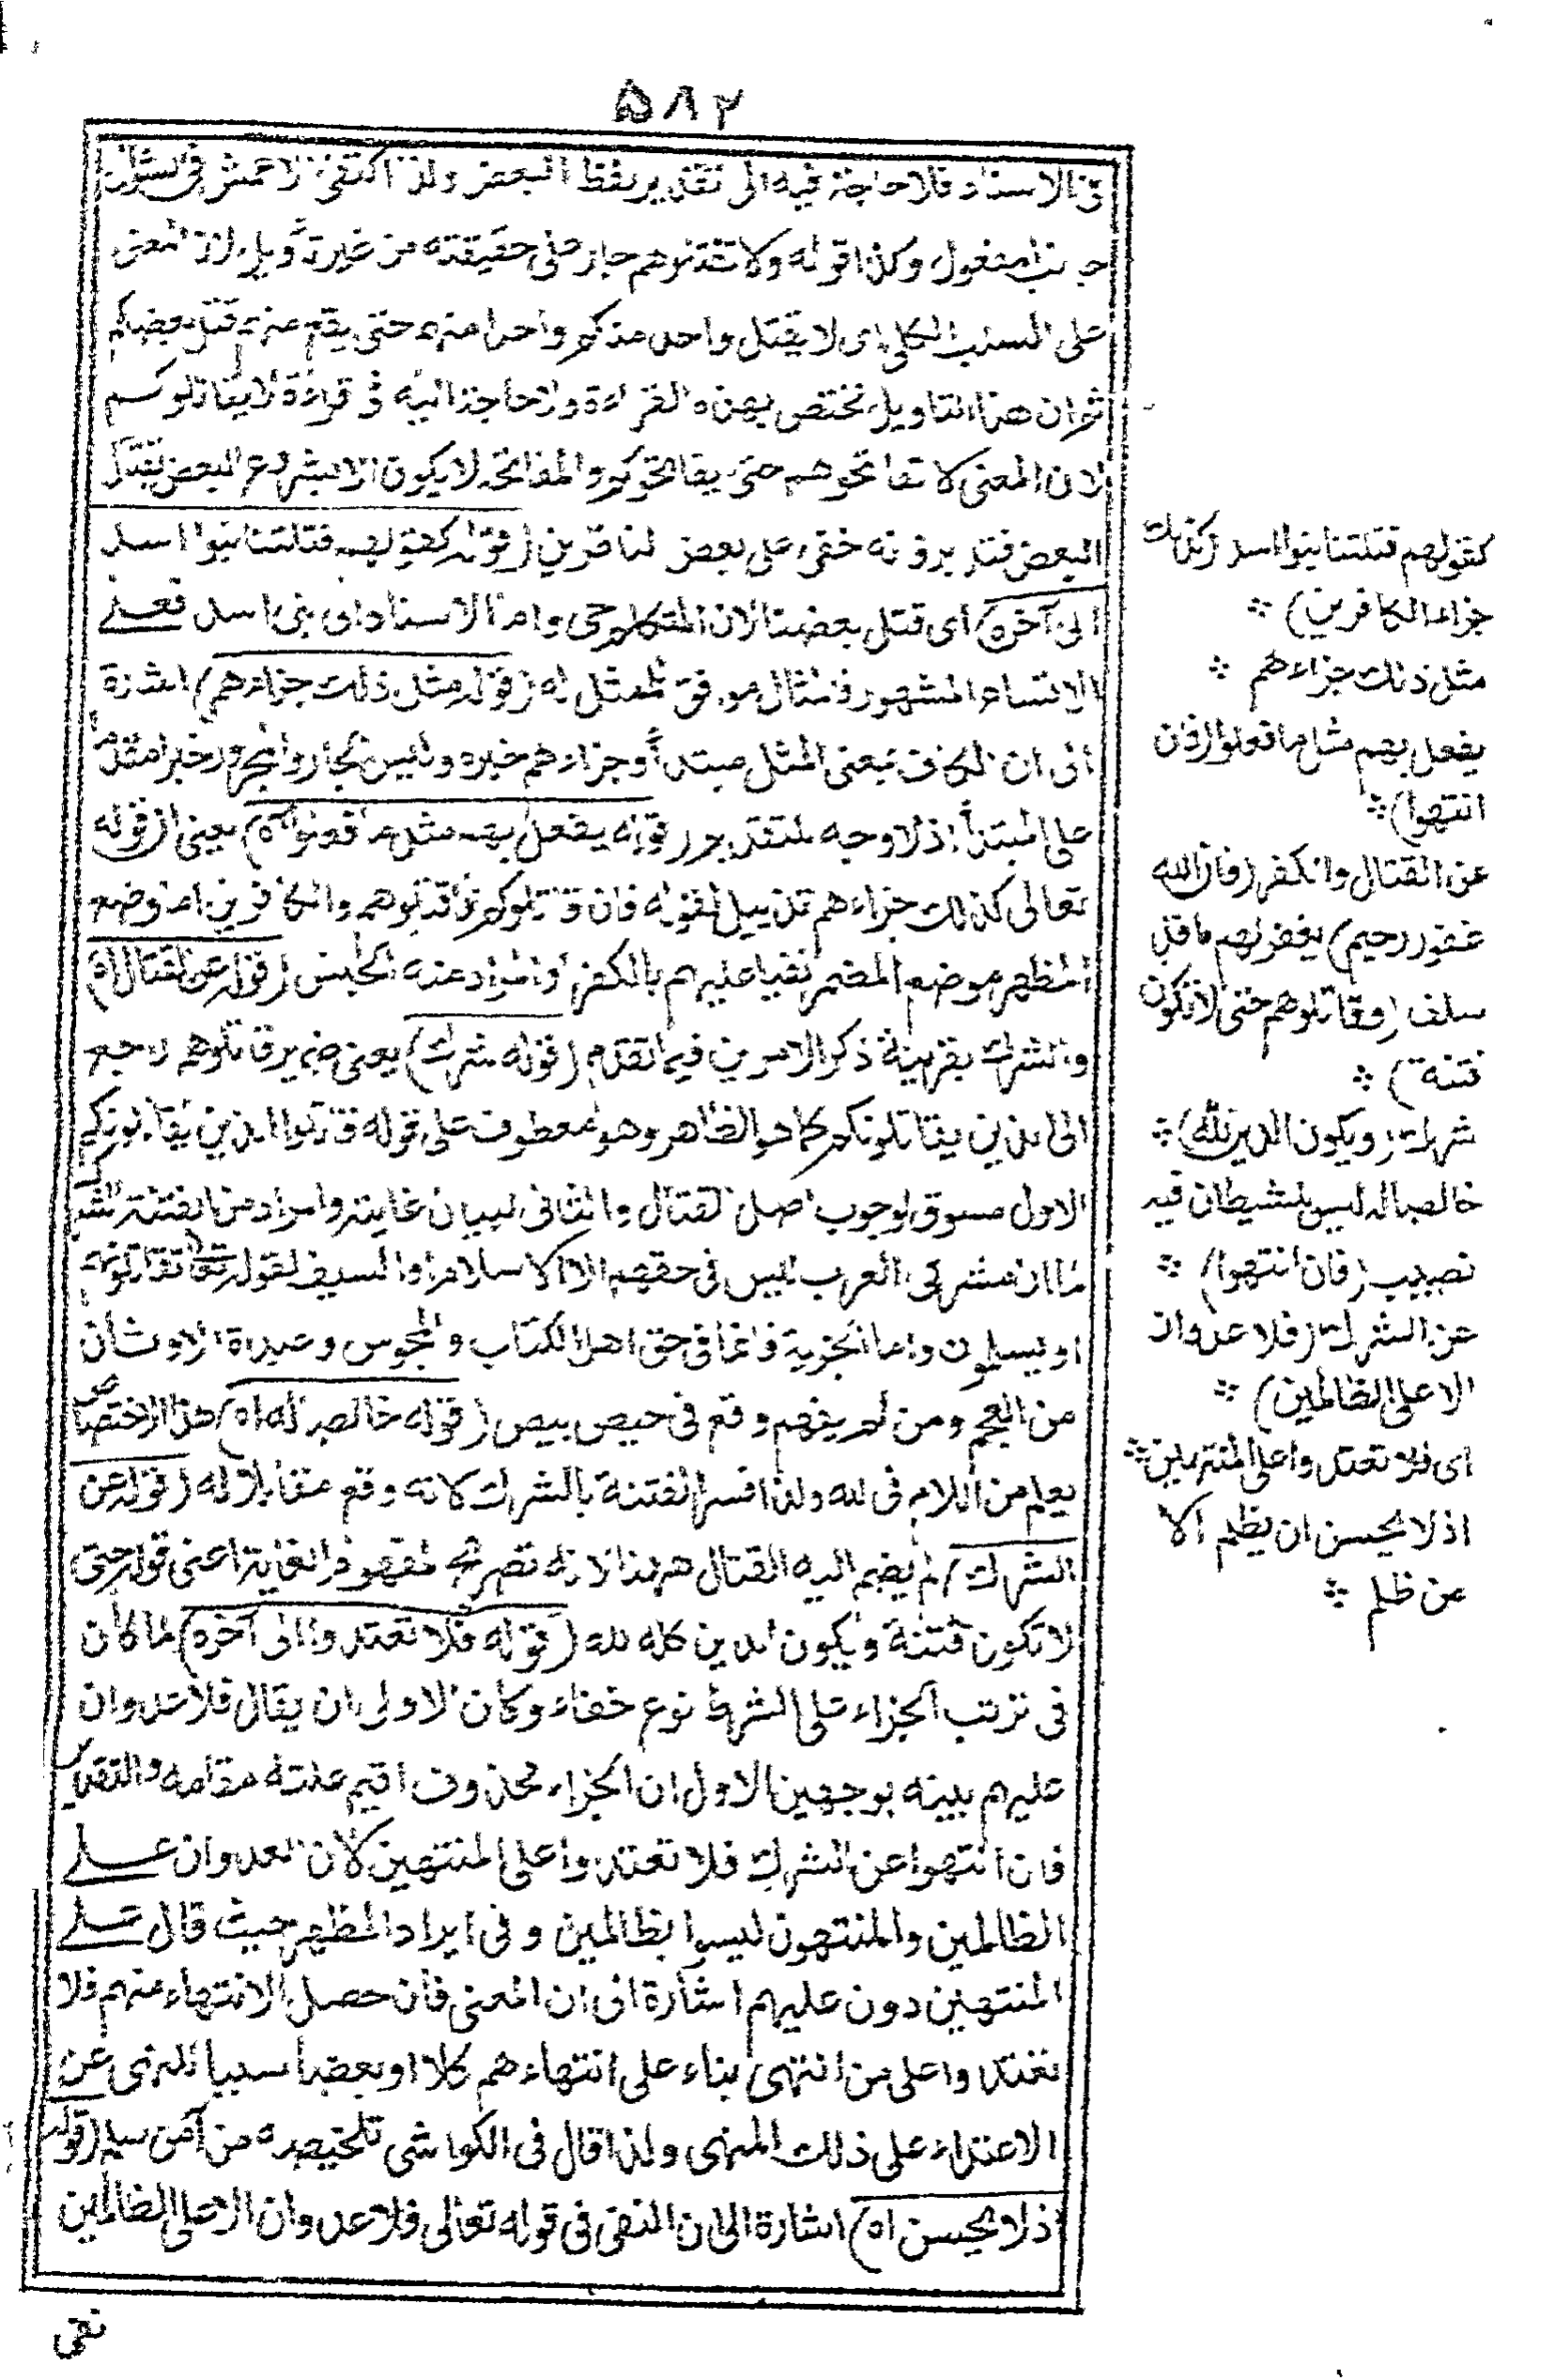 ۵۸۲
فى الاسناد فلا حاجة فيه الى تقدير لفظ البعض ولذا اكتفى الاخفش فى
جانب المفعول وكذا قوله ولا تقتلوهم جار على حقيقته من غير تأويل لان المعنى
على السلب الكلى اى لا يقتل واحد منكم واحدا منهم حتى يقع منهم قتل بعضكم
ثم ان هذا التاويل يختص بهذه القراءة ولا حاجة اليه فى قراءة لا يقاتلوكم
لان المعنى لا تفاتحوهم حتى يفاتحوكم والمفاتحة لا يكون الا بشروع البعض بقتال
البعض فتدبر فانه خفى على بعض الناظرين (قوله كقولهم قتلتنا بنوا اسد
الى آخره) اى قتل بعضنا لان المتكلم حى واما الاسناد الى بنى اسد فعلى
الاتساع المشهور فالمثال موافق للممثل له (قوله مثل ذلك جزاءهم) اشارة
الى ان الكاف بمعنى المثل مبتدأ وجزاءهم خبره وليس الجار والمجرور خبرا مقدما
على المبتدأ اذ لا وجه للتقديم (قوله يفعل بهم مثل ما فعلوا اه) يعنى ان قوله
تعالى كذلك جزاءهم تذييل لقوله فان قاتلوكم فاقتلوهم والكافرين اما وضع
المظهر موضع المضمر نعيا عليهم بالكفر او المراد منه الجنس (قوله عن القتال اه)
والشرك بقرينة ذكر الامرين فيما تقدم (قوله شرك) يعنى ضمير قاتلوهم راجع
الى الذين يقاتلونكم كما هو الظاهر وهو معطوف على قوله قاتلوا الذين يقاتلونكم
الاول مسوق لوجوب اصل القتال والثانى لبيان غايته والمراد من الفتنة الشرك
لما ان مشركى العرب ليس فى حقهم الا الاسلام او السيف لقوله تعالى تقاتلونهم
او يسلمون واما الجزية فانما فى حق اهل الكتاب والمجوس وعبدة الاوثان
من العجم ومن لم يفهم وقع فى حيص بيص (قوله خالصا له اه) هذا الاختصاص
يعلم من اللام فى لله ولذا فسر الفتنة بالشرك لانه وقع مقابلا له (قوله عن
الشرك) لم يضم اليه القتال ههنا لانه تصريح لمفهوم الغاية اعنى قوله حتى
لا تكون فتنة ويكون الدين كله لله (قوله فلا تعتدوا الى آخره) لما كان
فى ترتب الجزاء على الشرط نوع خفاء وكان الاولى ان يقال فلا عدوان
عليهم بينه بوجهين الاول ان الجزاء محذوف اقيم علته مقامه والتقدير
فان انتهوا عن الشرك فلا تعتدوا على المنتهين لان العدوان على
الظالمين والمنتهون ليسوا بظالمين وفى ايراد المظهر حيث قال على
المنتهين دون عليهم اشارة الى ان المعنى فان حصل الانتهاء منهم فلا
تعتدوا على من انتهى بناء على انتهاءهم كلا او بعضا سببا للنهى عن
الاعتداء على ذلك المنهى ولذا قال فى الكواشى تلخيصه من آمن (قوله
اذ لا يحسن اه) اشارة الى ان المنفى فى قوله تعالى فلا عدوان الا على الظالمين
نفى
كقولهم قتلتنا بنوا اسد (كذلك
جزاء الكافرين) ∴
مثل ذلك جزاءهم ∴
يفعل بهم مثل ما فعلوا (فان
انتهوا) ∴
عن القتال والكفر (فان الله
غفور رحيم) يغفر لهم ما قد
سلف (وقاتلوهم حتى لا تكون
فتنة) ∴
شرك (ويكون الدين لله) ∴
خالصا له ليس للشيطان فيه
نصيب (فان انتهوا) ∴
عن الشرك (فلا عدوان
الا على الظالمين) ∴
اى فلا تعتدوا على المنتهين ∴
اذ لا يحسن ان يظلم الا
من ظلم ∴